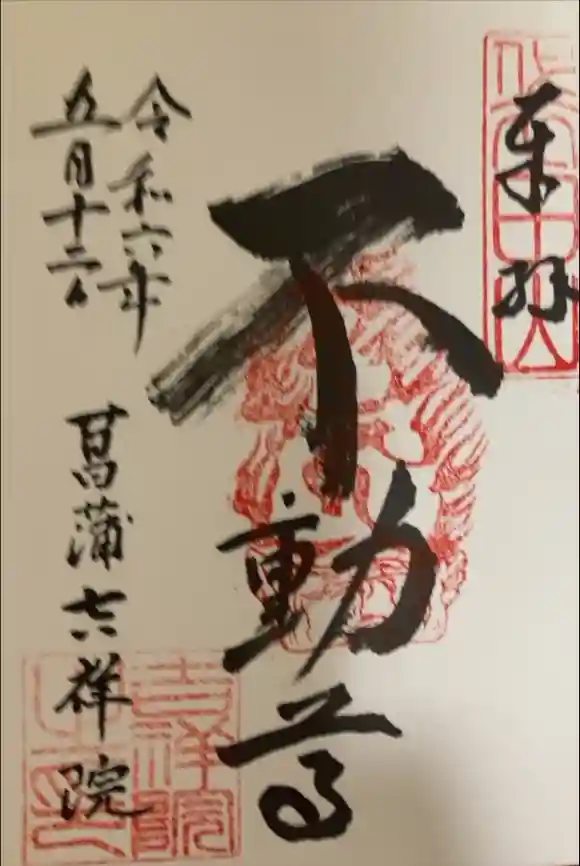 奉拝
不動尊
令和六年
五月十二日
菖蒲吉祥院
吉祥院